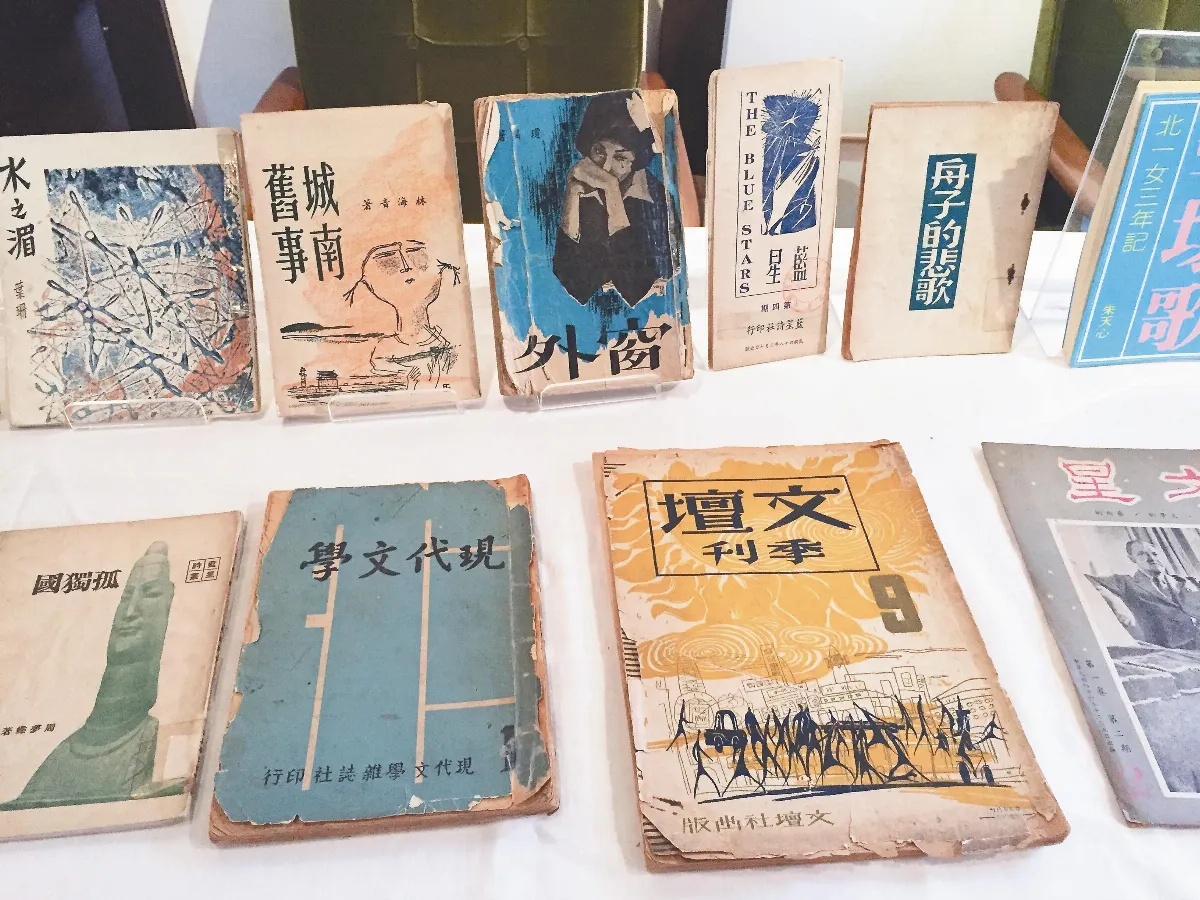 水之湄
葉珊
城南
舊事
林海音著
窗外
THE BLUE STARS
藍星
第四期
藍星詩社印行
舟子的悲歌
北一女三年記
歌
朱天心
孤獨國
藍星
詩叢
周夢蝶著
現代文學
現代文學雜誌社印行
文壇
季刊
9
文壇社出版
星
第一卷 第二期
2